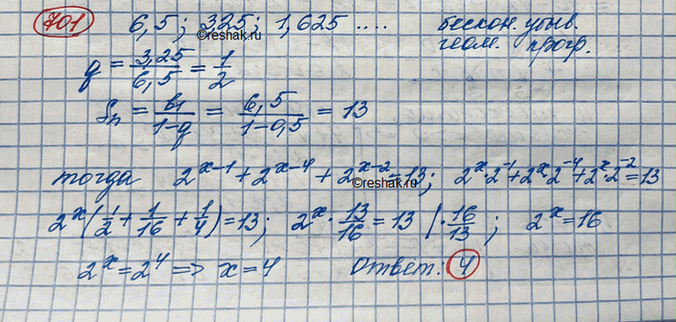 701 6,5; 3,25; 1,625 .... бескон. убыв.
геом. прогр.
q = 3,25/6,5 = 1/2
reshak.ru
Sn = b1/(1-q) = 6,5/(1-0,5) = 13
тогда 2^(x-1) + 2^(x-4) + 2^(x-2) = 13; 2^x·2^(-1) + 2^x·2^(-4) + 2^x·2^(-2) = 13
reshak.ru
2^x(1/2 + 1/16 + 1/4) = 13; 2^x · 13/16 = 13 |· 16/13; 2^x = 16
2^x = 2^4 => x = 4 Ответ: 4